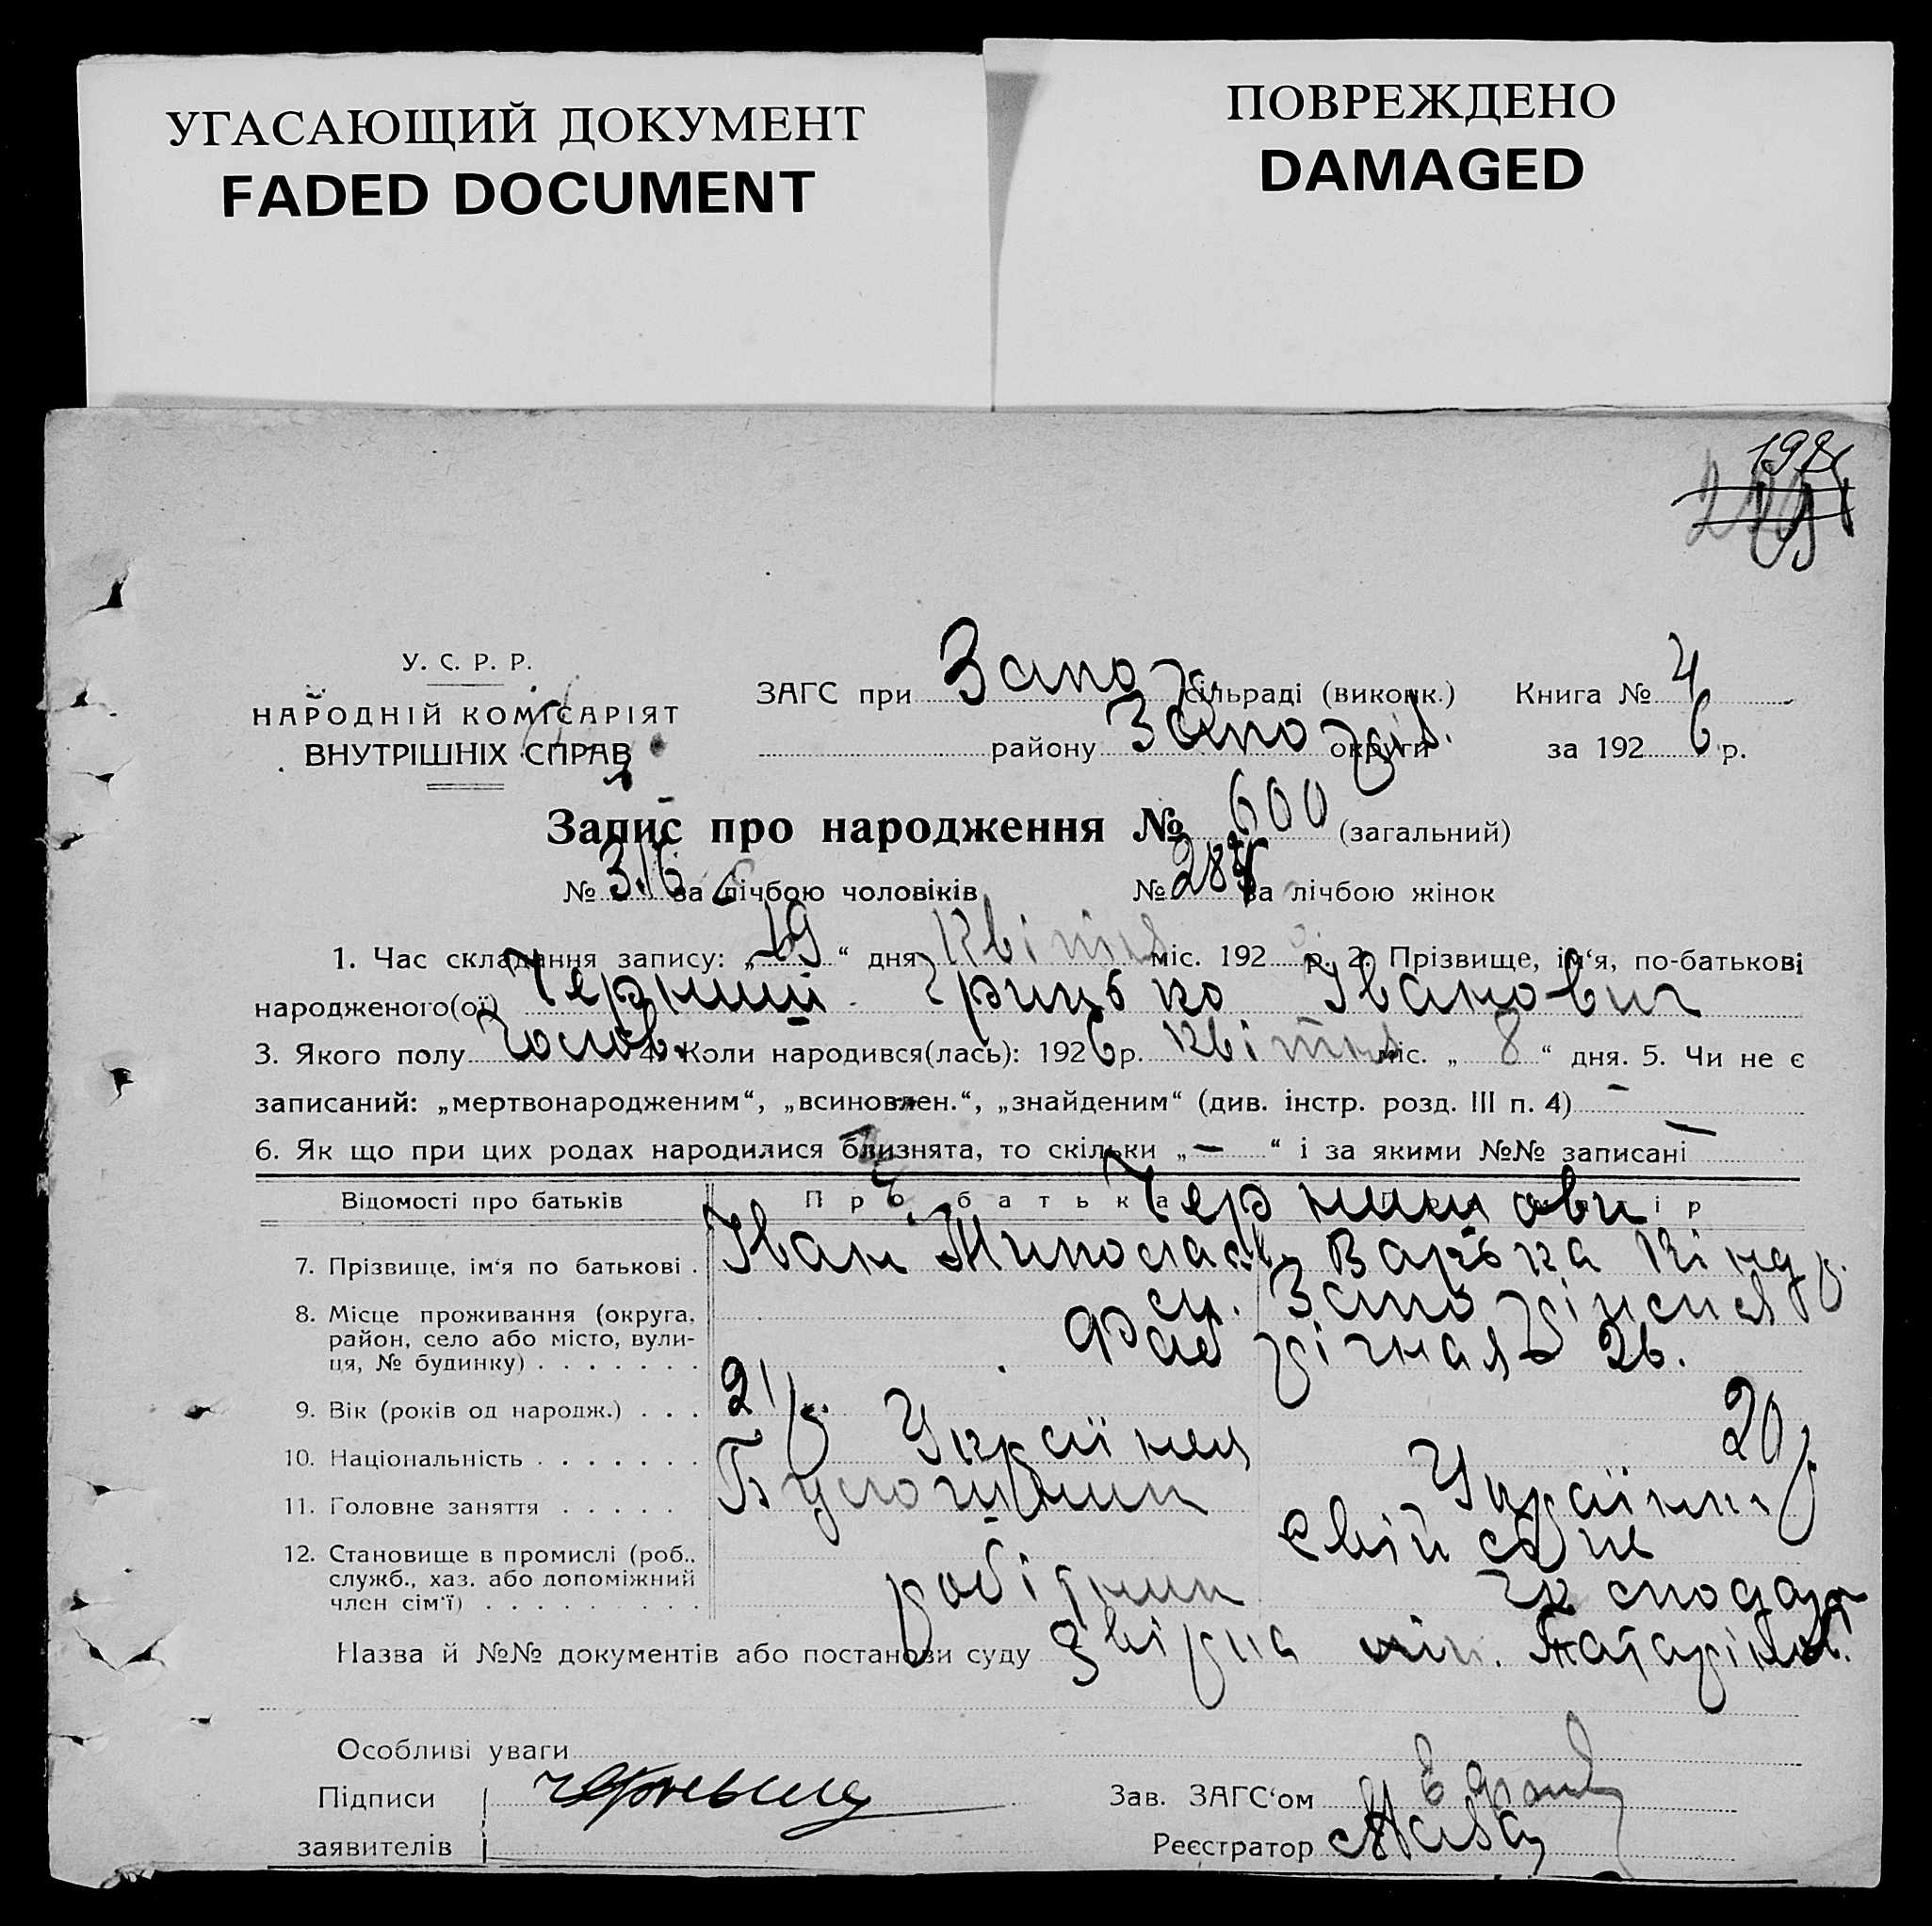 УГАСАЮЩИЙ ДОКУМЕНТ
FADED DOCUMENT
ПОВРЕЖДЕНО
DAMAGED
У. С. Р. Р.
НАРОДНІЙ КОМІСАРІЯТ
ВНУТРІШНІХ СПРАВ
ЗАГС при Запо сільраді (виконк.) Книга № 4
району округи за 192 6 р.
Запис про народження № 600 (загальний)
№ 316 за лічбою чоловіків № за лічбою жінок
1. Час складання запису: „ 19 “ дня квітня міс. 192 р. 2. Прізвище, ім‘я, по-батькові
народженого(ої) Черниш Грицько Іванович
3. Якого полу чолов. 4. Коли народився(лась): 192 6 р. квітня міс. „ 8 “ дня. 5. Чи не є
записаний: „мертвонародженим“, „всиновлен.“, „знайденим“ (див. інстр. розд. III п. 4) –
6. Як що при цих родах народилися близнята, то скільки „ – “ і за якими №№ записані –
Відомості про батьків Про батька
7. Прізвище, ім‘я по батькові . Іван Варька Кіндр.
8. Місце проживання (округа,
район, село або місто, вули-
ця, № будинку) . . . . . . . 26.
9. Вік (років од народж.) . . . 21 р. 20 р.
10. Національність . . . . . . . Українец Українка
11. Головне заняття . . . . .
12. Становище в промислі (роб.,
служб., хаз. або допоміжний
член сім‘ї) . . . . . . . . . робітник господар
Назва й №№ документів або постанови суду
Особливі уваги
Підписи
заявителів
Зав. ЗАГС‘ом
Реєстратор